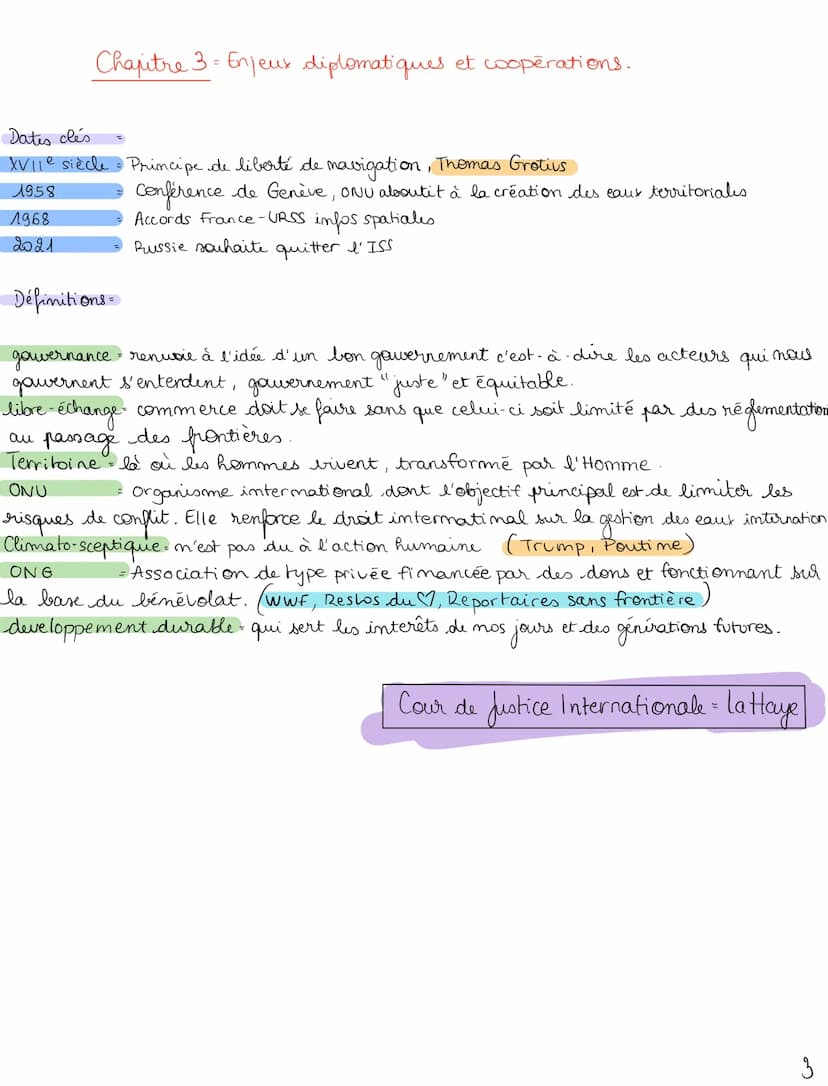 Chapitre 3 = Enjeux diplomatiques et coopérations.
Dates clés =
XVIIe siècle = Principe de liberté de navigation, Thomas Grotius
1958 = Conférence de Genève, ONU aboutit à la création des eaux territoriales
1968 = Accords France-URSS infos spatiales
2021 = Russie souhaite quitter l'ISS
Définitions =
gouvernance = renvoie à l'idée d'un bon gouvernement c'est-à-dire les acteurs qui nous
gouvernent s'entendent, gouvernement "juste" et équitable.
libre-échange = commerce doit se faire sans que celui-ci soit limité par des réglementation
au passage des frontières.
Territoire = là où les hommes vivent, transformé par l'Homme.
ONU = Organisme international dont l'objectif principal est de limiter les
risques de conflit. Elle renforce le droit international sur la gestion des eaux internation
Climato-sceptique = n'est pas du à l'action humaine (Trump, Poutine)
ONG = Association de type privée financée par des dons et fonctionnant sur
la base du bénévolat. (WWF, Restos du ♡, Reportaires sans frontière)
developpement durable = qui sert les interêts de nos jours et des générations futures.
Cour de Justice Internationale = La Haye
3